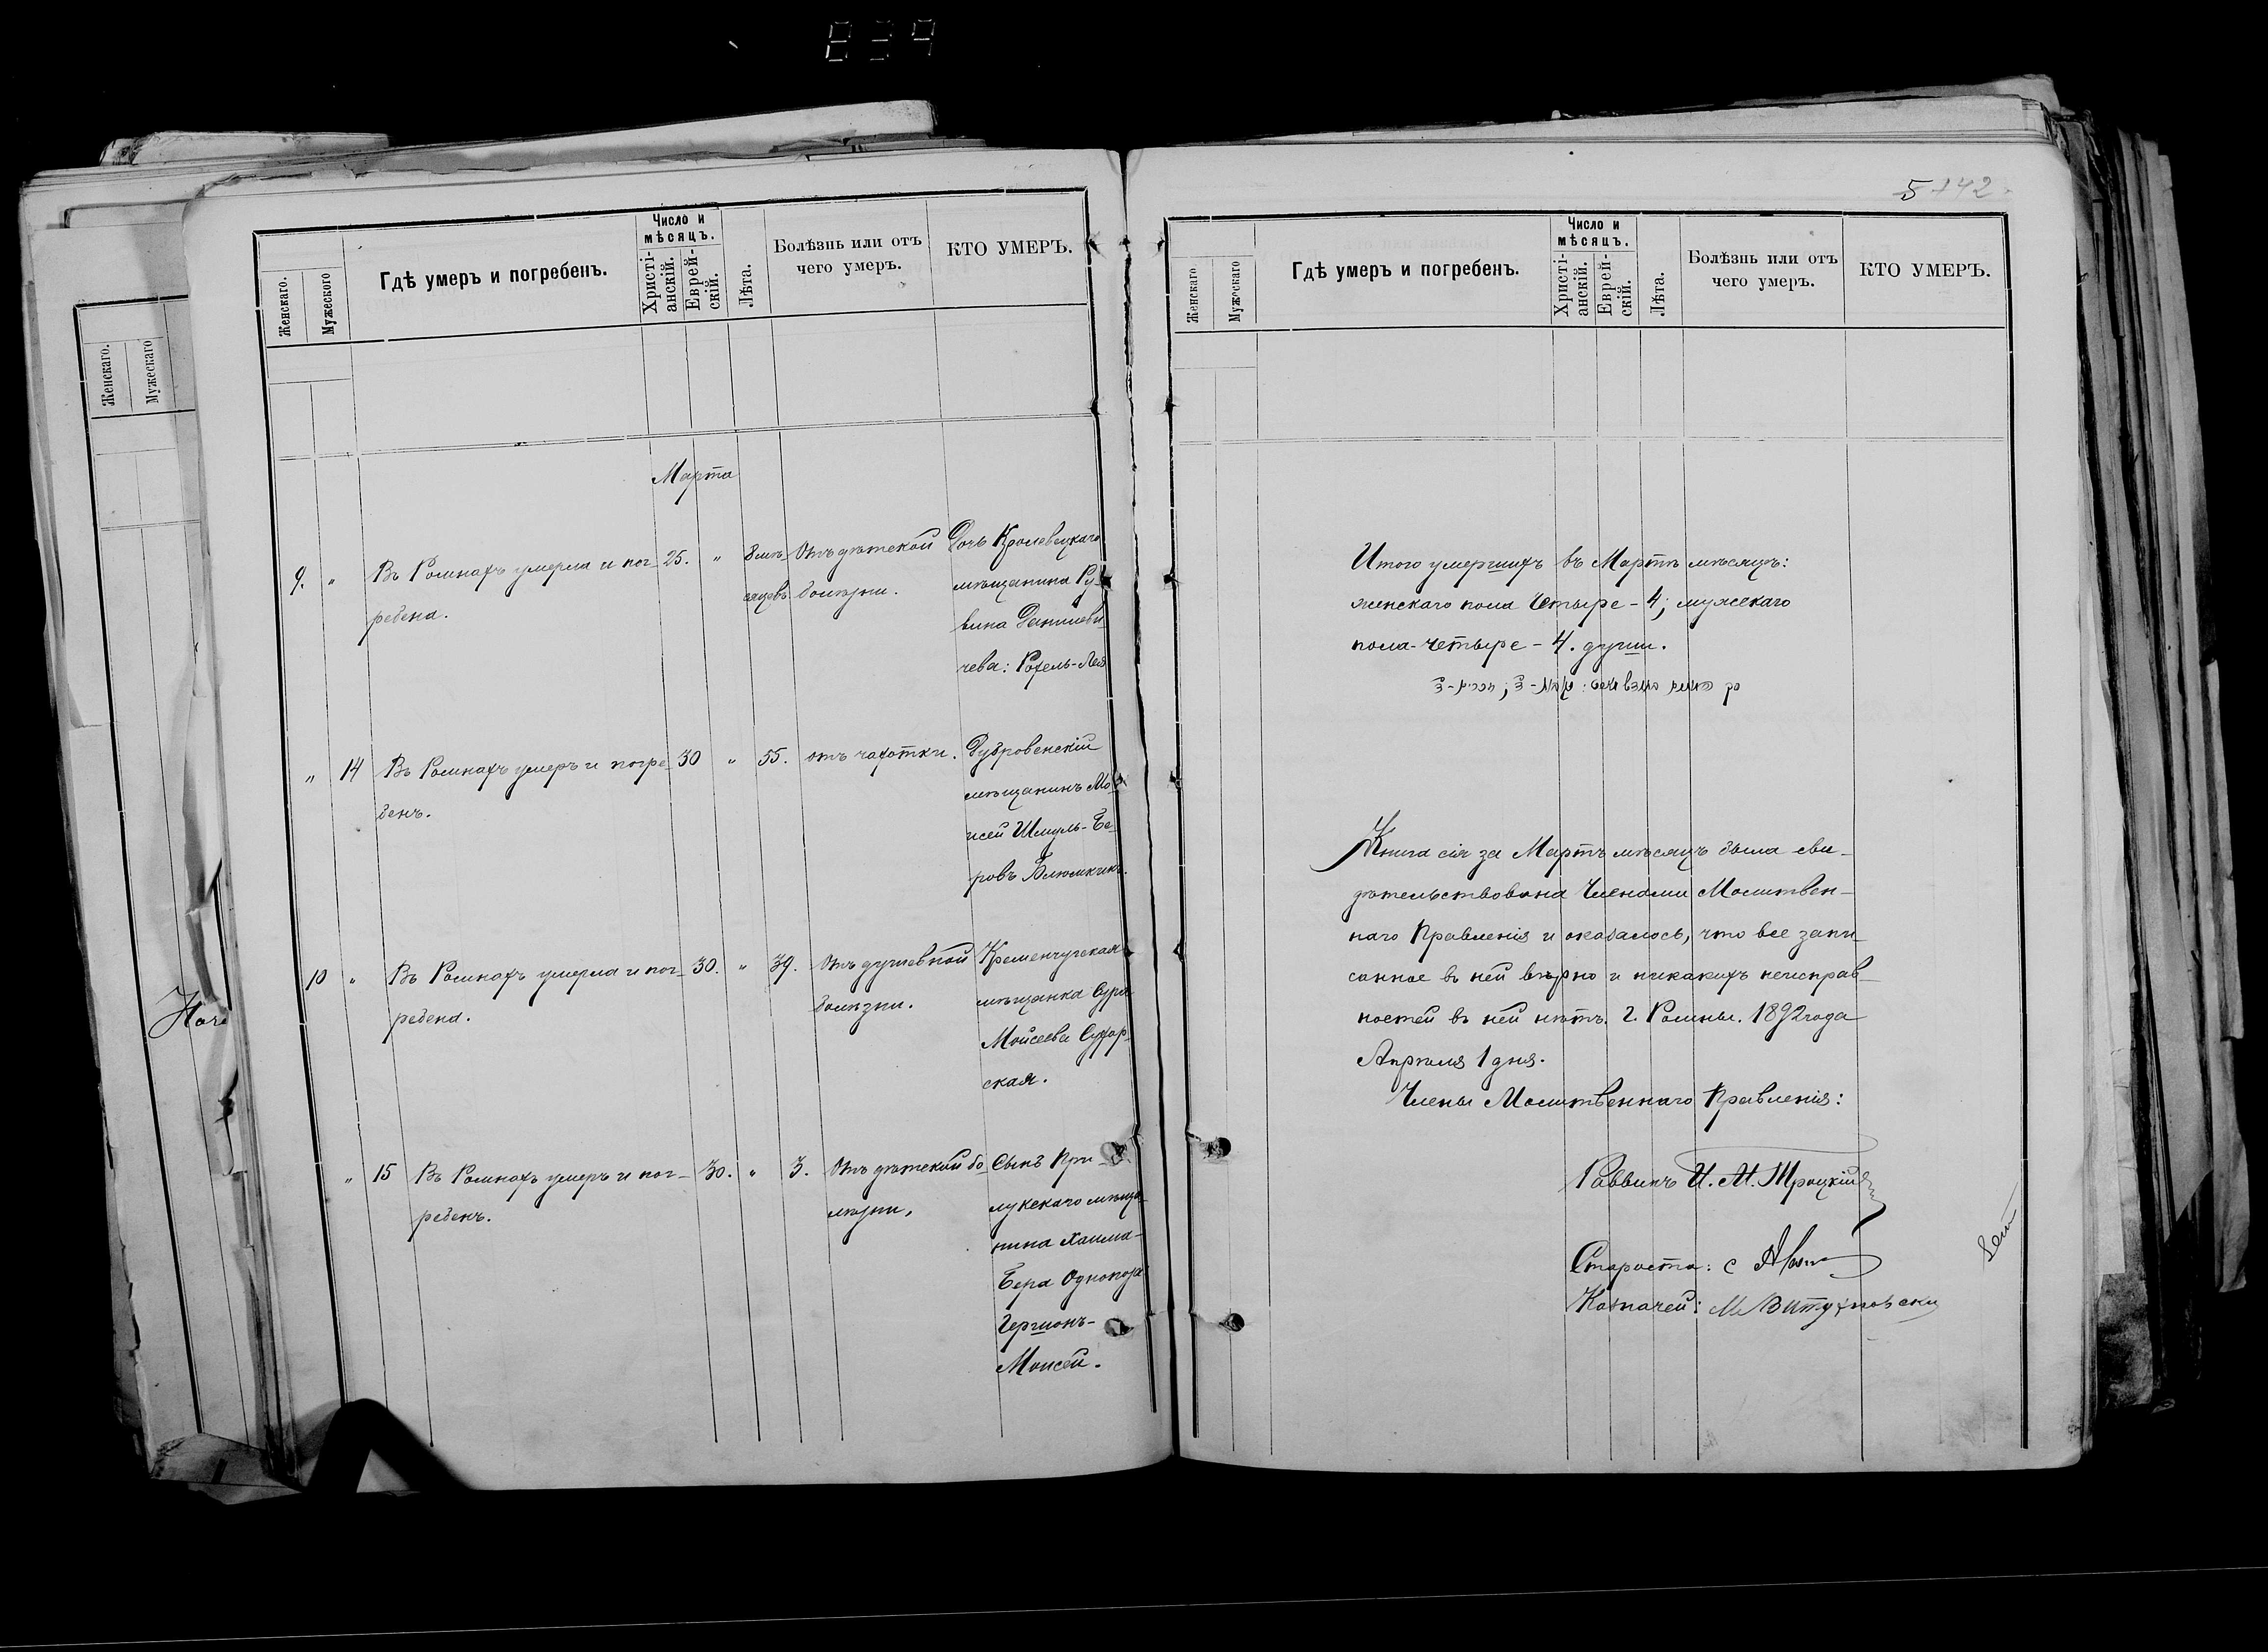 839
Женскаго.
Мужескаго
Женскаго.
Мужескаго
Гдѣ умеръ и погребенъ.
Число и мѣсяцъ.
Христі-анскій.
Еврей-скій.
Лѣта.
Болѣзнь или отъ
чего умеръ.
КТО УМЕРЪ.
Марта
9. " Въ Ромнахъ умерла и пог- 25. " 8 мѣ- Отъ дѣтской Дочь Кролевецкаго
ребена. сяцевъ болѣзни. мѣщанина Ру-
вина Данилеви-
чева: Рохель-Лея
" 14 Въ Ромнахъ умеръ и погре- 30 " 55. отъ чахотки. Дубровенскій
бенъ. мѣщанинъ Мо-
исей Шмуль-Бе-
ровъ Блюмкинъ.
10 " Въ Ромнахъ умерла и пог- 30. " 39. Отъ душевной Кременчугская
ребена. болѣзни. мѣщанка Сура
Мойсеева
ская.
" 15 Въ Ромнахъ умеръ и пог- 30. " 3. Отъ дѣтской бо- Сынъ При-
ребенъ. лѣзни, лукскаго мѣща-
нина Хаима-
Бера
Гершонъ-
Моисей.
5 142
Женскаго.
Мужескаго
Гдѣ умеръ и погребенъ.
Число и мѣсяцъ.
Христі-анскій.
Еврей-скій.
Лѣта.
Болѣзнь или отъ
чего умеръ.
КТО УМЕРЪ.
Итого умершихъ въ Мартѣ мѣсяцѣ:
женскаго пола четыре - 4; мужскаго
пола - четыре - 4. души.
Книга сія за Мартъ мѣсяцъ была сви-
дѣтельствована Членами Молитвен-
наго Правленія и оказалось, что все запи-
санное въ ней вѣрно и никакихъ неисправ-
ностей въ ней нѣтъ. г. Ромны. 1892 года
Апрѣля 1 дня.
Члены Молитвеннаго Правленія:
Раввинъ И. М. Троцкій
Староста: С
Казначей: М